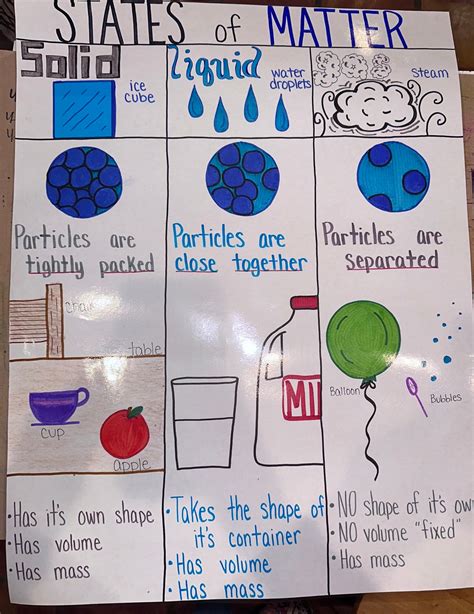 STATES of MATTER
Solid
ice
cube
liquid
water
droplets
steam
Particles are
tightly packed
Particles are
close together
Particles are
separated
chair
table
cup
apple
MI
Balloon
Bubbles
• Has it's own shape
• Has volume
• Has mass
• Takes the shape of
it's container
• Has volume
• Has mass
• NO shape of it's ow
• NO volume "fixed"
• Has mass